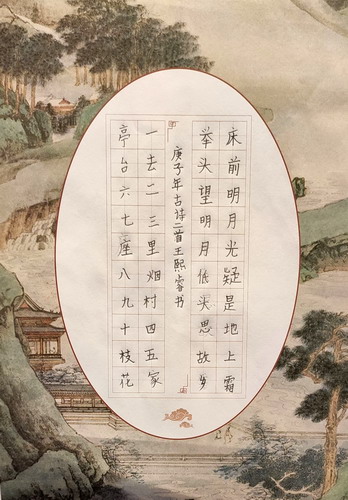 床前明月光疑是地上霜
举头望明月低头思故乡
庚子年古诗二首王熙睿书
一去二三里烟村四五家
亭台六七座八九十枝花